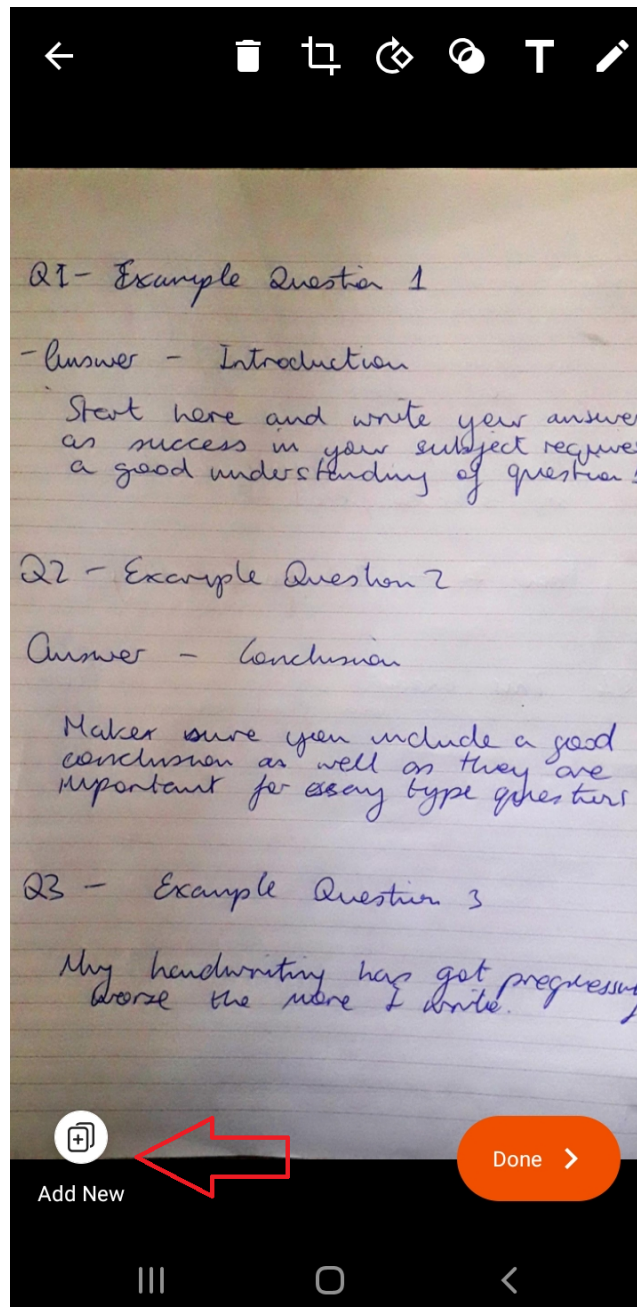 T
Q1 - Example Question 1
- Answer - Introduction
Start here and write your answer
as success in your subject requires
a good understanding of questions
Q2 - Example Question 2
Answer - Conclusion
Maker sure you include a good
conclusion as well as they are
important for essay type questions
Q3 - Example Question 3
My handwriting has got
worse the more I write.
Done
Add New